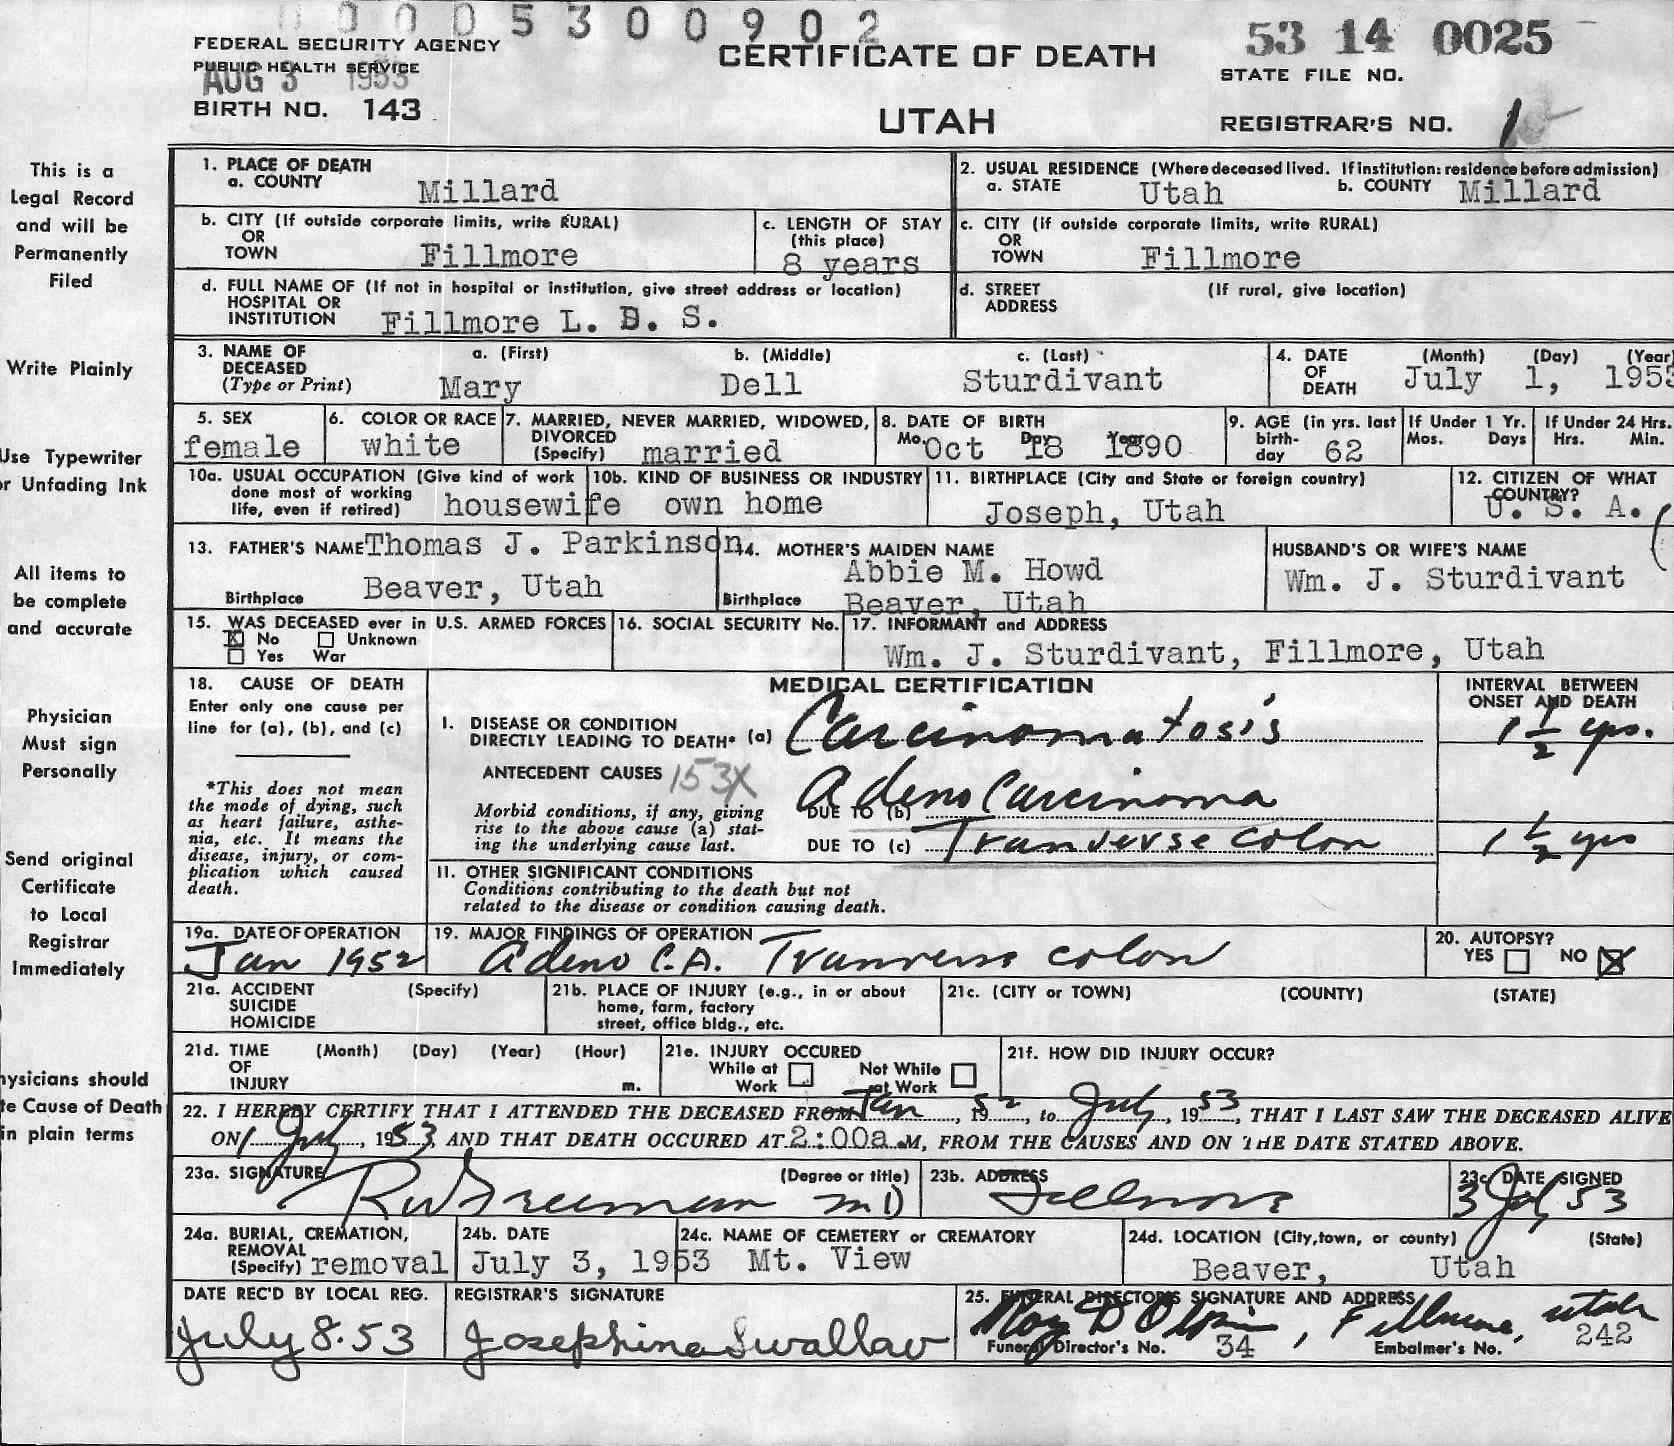 0 0 0 0 5 3 0 0 9 0 2
FEDERAL SECURITY AGENCY
PUBLIC HEALTH SERVICE
AUG 3 1953
BIRTH NO. 143
CERTIFICATE OF DEATH
UTAH
53 14 0025
STATE FILE NO.
REGISTRAR'S NO.
This is a
Legal Record
and will be
Permanently
Filed
Write Plainly
Use Typewriter
or Unfading Ink
All items to
be complete
and accurate
Physician
Must sign
Personally
Send original
Certificate
to Local
Registrar
Immediately
hysicians should
te Cause of Death
in plain terms
1. PLACE OF DEATH
a. COUNTY Millard
2. USUAL RESIDENCE (Where deceased lived. If institution: residence before admission)
a. STATE Utah b. COUNTY Millard
b. CITY (If outside corporate limits, write RURAL)
OR
TOWN Fillmore
c. LENGTH OF STAY
(this place)
8 years
c. CITY (if outside corporate limits, write RURAL)
OR
TOWN Fillmore
d. FULL NAME OF (If not in hospital or institution, give street address or location)
HOSPITAL OR
INSTITUTION Fillmore L. D. S.
d. STREET (If rural, give location)
ADDRESS
3. NAME OF DECEASED (Type or Print)
a. (First) b. (Middle) c. (Last)
Mary Dell Sturdivant
4. DATE OF DEATH (Month) (Day) (Year)
July 1, 1953
5. SEX
female
6. COLOR OR RACE
white
7. MARRIED, NEVER MARRIED, WIDOWED,
DIVORCED
(Specify) married
8. DATE OF BIRTH
Mo. Oct Day 18 Year 1890
9. AGE (in yrs. last
birth-
day 62
If Under 1 Yr.
Mos. Days
If Under 24 Hrs.
Hrs. Min.
10a. USUAL OCCUPATION (Give kind of work
done most of working
life, even if retired) housewife
10b. KIND OF BUSINESS OR INDUSTRY
own home
11. BIRTHPLACE (City and State or foreign country)
Joseph, Utah
12. CITIZEN OF WHAT
COUNTRY?
U. S. A.
13. FATHER'S NAME Thomas J. Parkinson
Birthplace Beaver, Utah
14. MOTHER'S MAIDEN NAME
Abbie M. Howd
Birthplace Beaver, Utah
HUSBAND'S OR WIFE'S NAME
Wm. J. Sturdivant
15. WAS DECEASED ever in U.S. ARMED FORCES
X No Unknown
Yes War
16. SOCIAL SECURITY No.
17. INFORMANT and ADDRESS
Wm. J. Sturdivant, Fillmore, Utah
18. CAUSE OF DEATH
Enter only one cause per
line for (a), (b), and (c)
*This does not mean
the mode of dying, such
as heart failure, asthe-
nia, etc. It means the
disease, injury, or com-
plication which caused
death.
MEDICAL CERTIFICATION
INTERVAL BETWEEN
ONSET AND DEATH
I. DISEASE OR CONDITION
DIRECTLY LEADING TO DEATH* (a) Carcinomatosis 1 1/2 yrs.
ANTECEDENT CAUSES 153X
Morbid conditions, if any, giving
rise to the above cause (a) stat-
ing the underlying cause last.
DUE TO (b) Adeno Carcinoma
DUE TO (c) Tranverse colon 1 1/2 yrs
11. OTHER SIGNIFICANT CONDITIONS
Conditions contributing to the death but not
related to the disease or condition causing death.
19a. DATE OF OPERATION
Jan 1952
19. MAJOR FINDINGS OF OPERATION
Adeno C.A. Tranverse colon
20. AUTOPSY?
YES NO X
21a. ACCIDENT (Specify)
SUICIDE
HOMICIDE
21b. PLACE OF INJURY (e.g., in or about
home, farm, factory
street, office bldg., etc.
21c. (CITY or TOWN) (COUNTY) (STATE)
21d. TIME (Month) (Day) (Year) (Hour)
OF
INJURY m.
21e. INJURY OCCURED
While at Work
Not While at Work
21f. HOW DID INJURY OCCUR?
22. I HEREBY CERTIFY THAT I ATTENDED THE DECEASED FROM Jan, 1952, to July, 1953, THAT I LAST SAW THE DECEASED ALIVE
ON 1 July, 1953, AND THAT DEATH OCCURED AT 2:00a.M, FROM THE CAUSES AND ON THE DATE STATED ABOVE.
23a. SIGNATURE (Degree or title)
R W Freeman MD
23b. ADDRESS
Fillmore
23c. DATE SIGNED
3 July 53
24a. BURIAL, CREMATION,
REMOVAL
(Specify) removal
24b. DATE
July 3, 1953
24c. NAME OF CEMETERY or CREMATORY
Mt. View
24d. LOCATION (City, town, or county) (State)
Beaver, Utah
DATE REC'D BY LOCAL REG.
July 8. 53
REGISTRAR'S SIGNATURE
Josephine Swallow
25. FUNERAL DIRECTOR'S SIGNATURE AND ADDRESS
Roy D Olpin, Fillmore, Utah
Funeral Director's No. 34 Embalmer's No. 242